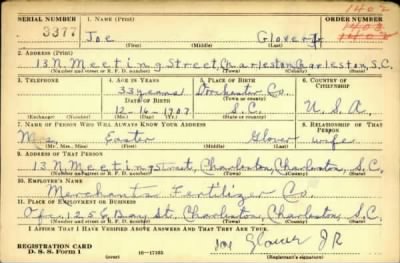 1402
SERIAL NUMBER 1. NAME (Print) ORDER NUMBER
3377 Joe Glover Jr
(First) (Middle) (Last)
2. ADDRESS (Print)
13 N. Meeting Street, Charleston, Charleston, S.C.
(Number and street or R. F. D. number) (Town) (County) (State)
3. TELEPHONE 4. AGE IN YEARS 5. PLACE OF BIRTH 6. COUNTRY OF CITIZENSHIP
33 years Dorchester Co.
DATE OF BIRTH (Town or county)
12-16-1907 S.C. U.S.A.
(Exchange) (Number) (Mo.) (Day) (Yr.) (State or country)
7. NAME OF PERSON WHO WILL ALWAYS KNOW YOUR ADDRESS 8. RELATIONSHIP OF THAT PERSON
Mrs. Easter Glover wife
(Mr., Mrs., Miss) (First) (Middle) (Last)
9. ADDRESS OF THAT PERSON
13 N. Meeting Street, Charleston, Charleston, S.C.
(Number and street or R. F. D. number) (Town) (County) (State)
10. EMPLOYER'S NAME
Merchants Fertilizer Co.
11. PLACE OF EMPLOYMENT OR BUSINESS
125 E. Bay St. Charleston, Charleston, S.C.
(Number and street or R. F. D. number) (Town) (County) (State)
I AFFIRM THAT I HAVE VERIFIED ABOVE ANSWERS AND THAT THEY ARE TRUE.
REGISTRATION CARD
D. S. S. Form 1 16-17105 Joe Glover JR
(over) (Registrant's signature)